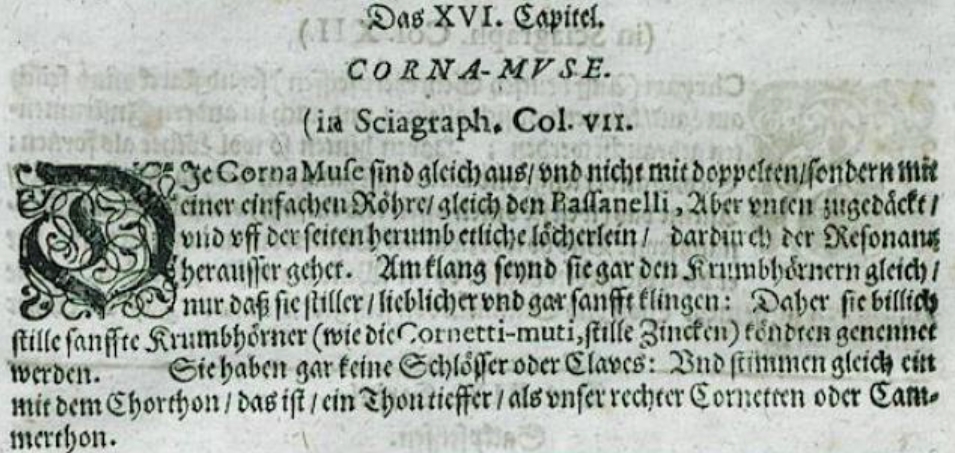 Das XVI. Capitel.
CORNA-MVSE.
(in Sciagraph. Col. VII.
DJe Corna Muse sind gleich aus/ vnd nicht mit doppelten/sondern mit
einer einfachen Röhre/ gleich den Bassanelli, Aber vnten zugedäckt/
vnd vff der seiten herumb etliche löcherlein/ dardurch der Resonanz
herausser gehet. Am klang seynd sie gar den Krumbhörnern gleich/
nur daß sie stiller/ lieblicher vnd gar sanfft klingen: Daher sie billich
stille sanffte Krumbhörner (wie die Cornetti-muti, stille Zincken) köndten genennet
werden. Sie haben gar keine Schlösser oder Claves: Vnd stimmen gleich ein
mit dem Chorthon/ das ist/ ein Thon tieffer/ als vnser rechter Cornetten oder Cam-
merthon.